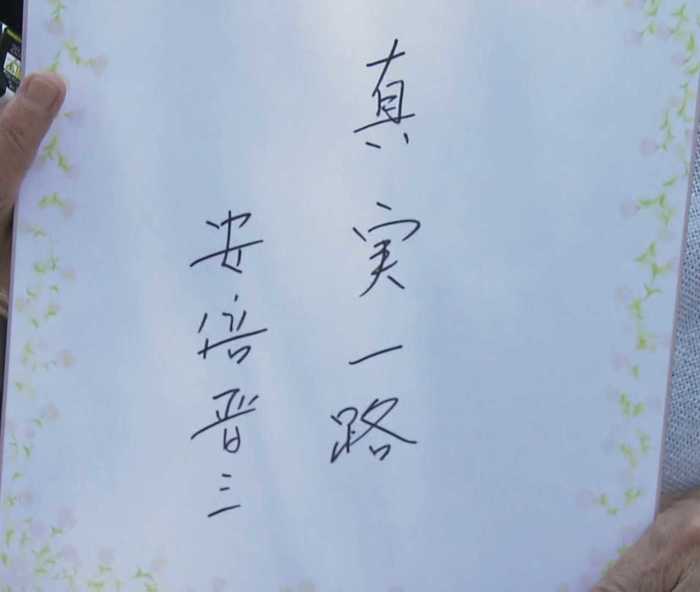 真実一路
安倍晋三